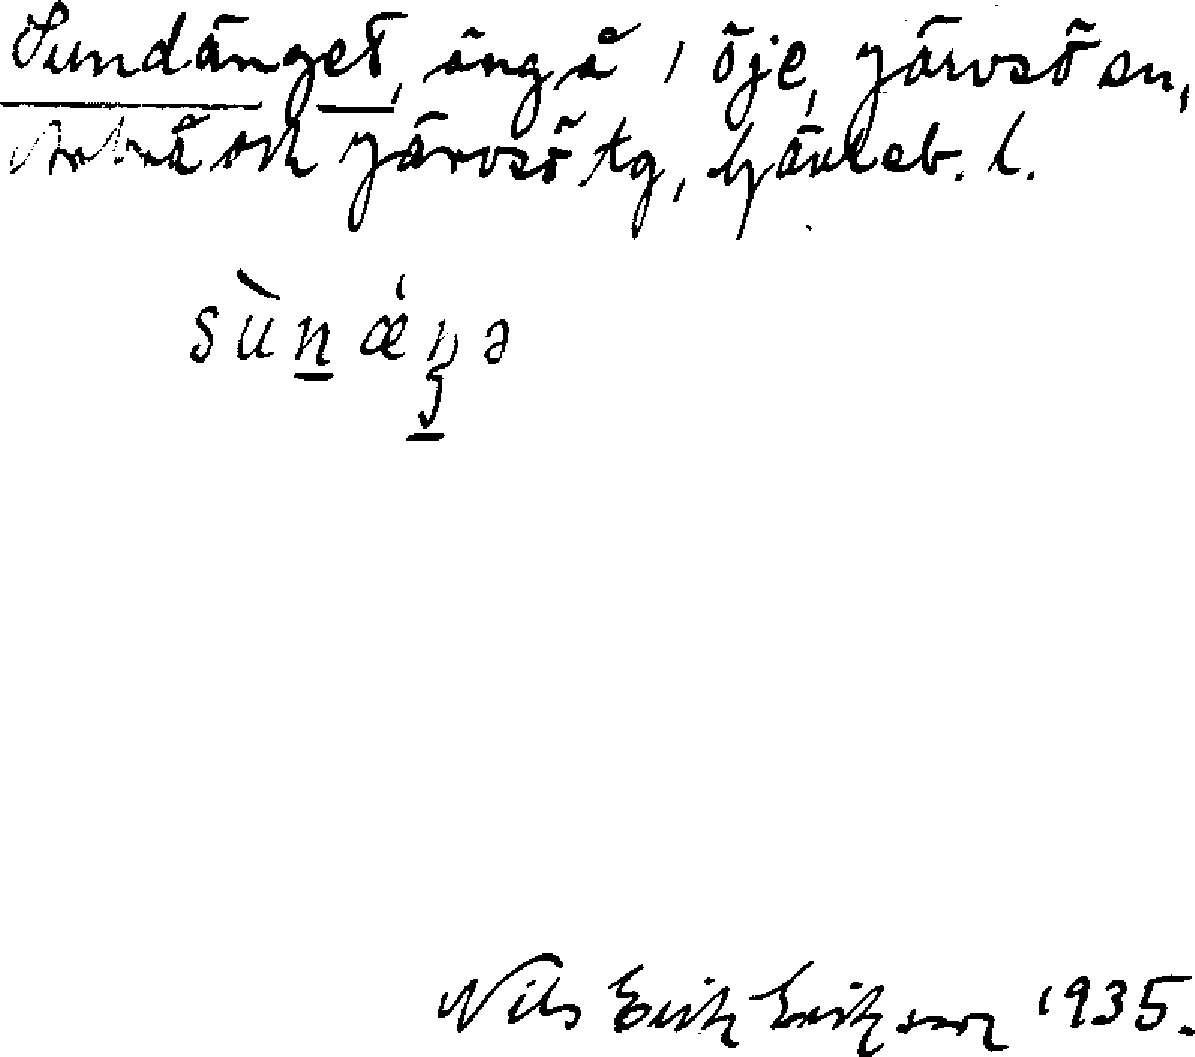 Sundänget, äng å, i Öje, Järvsö sn,
Arbrå och Järvsö tg, Gävleb. l.
sùnǽŋə
Nils Erik Eriksson 1935.